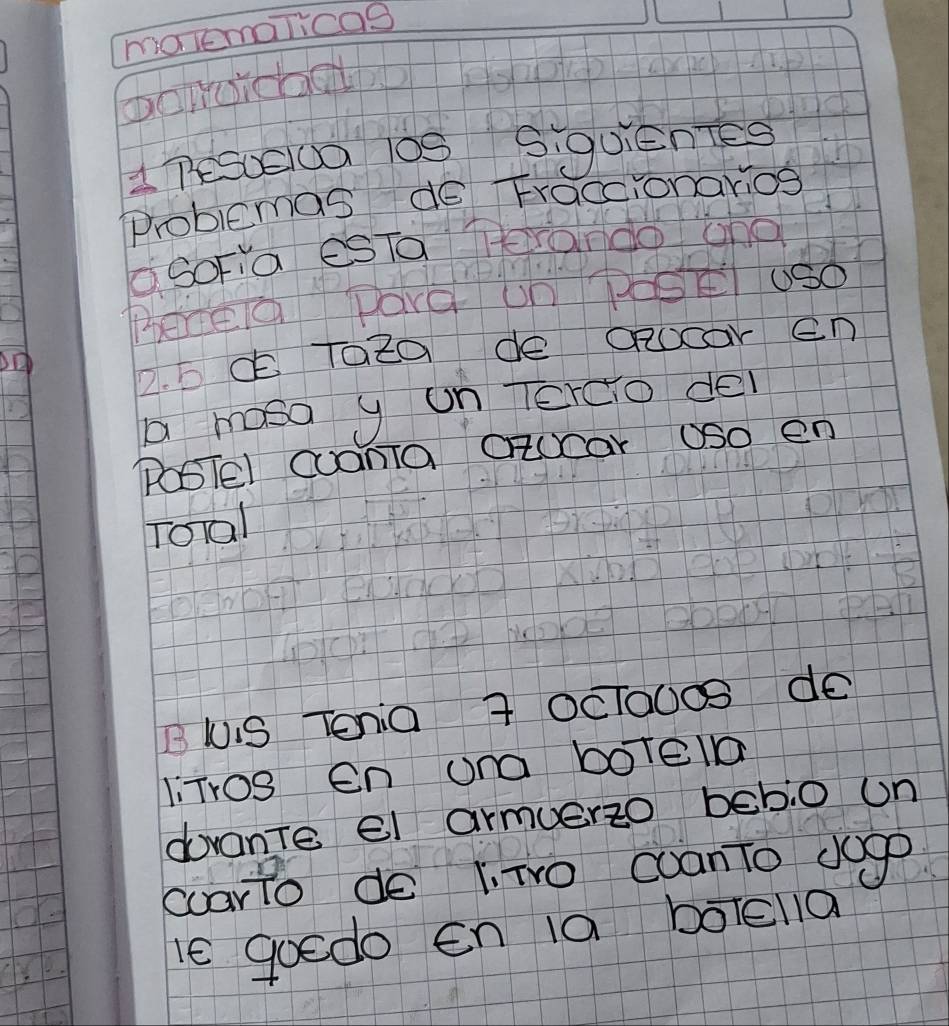 matematicas
actividad
1 Resuelva los siguientes
Problemas de Fraccionarios
a. Sofia esta Perando una
Receta para un Pastel uso
2.5 de Taza de azucar en
la masa y un Tercio del
Pastel cuanta azucar uso en
Total
B luis Tenia 7 octavos de
litros en una botella
durante el armuerzo bebio un
cuarto de litro cuanto jugo
le quedo en la botella